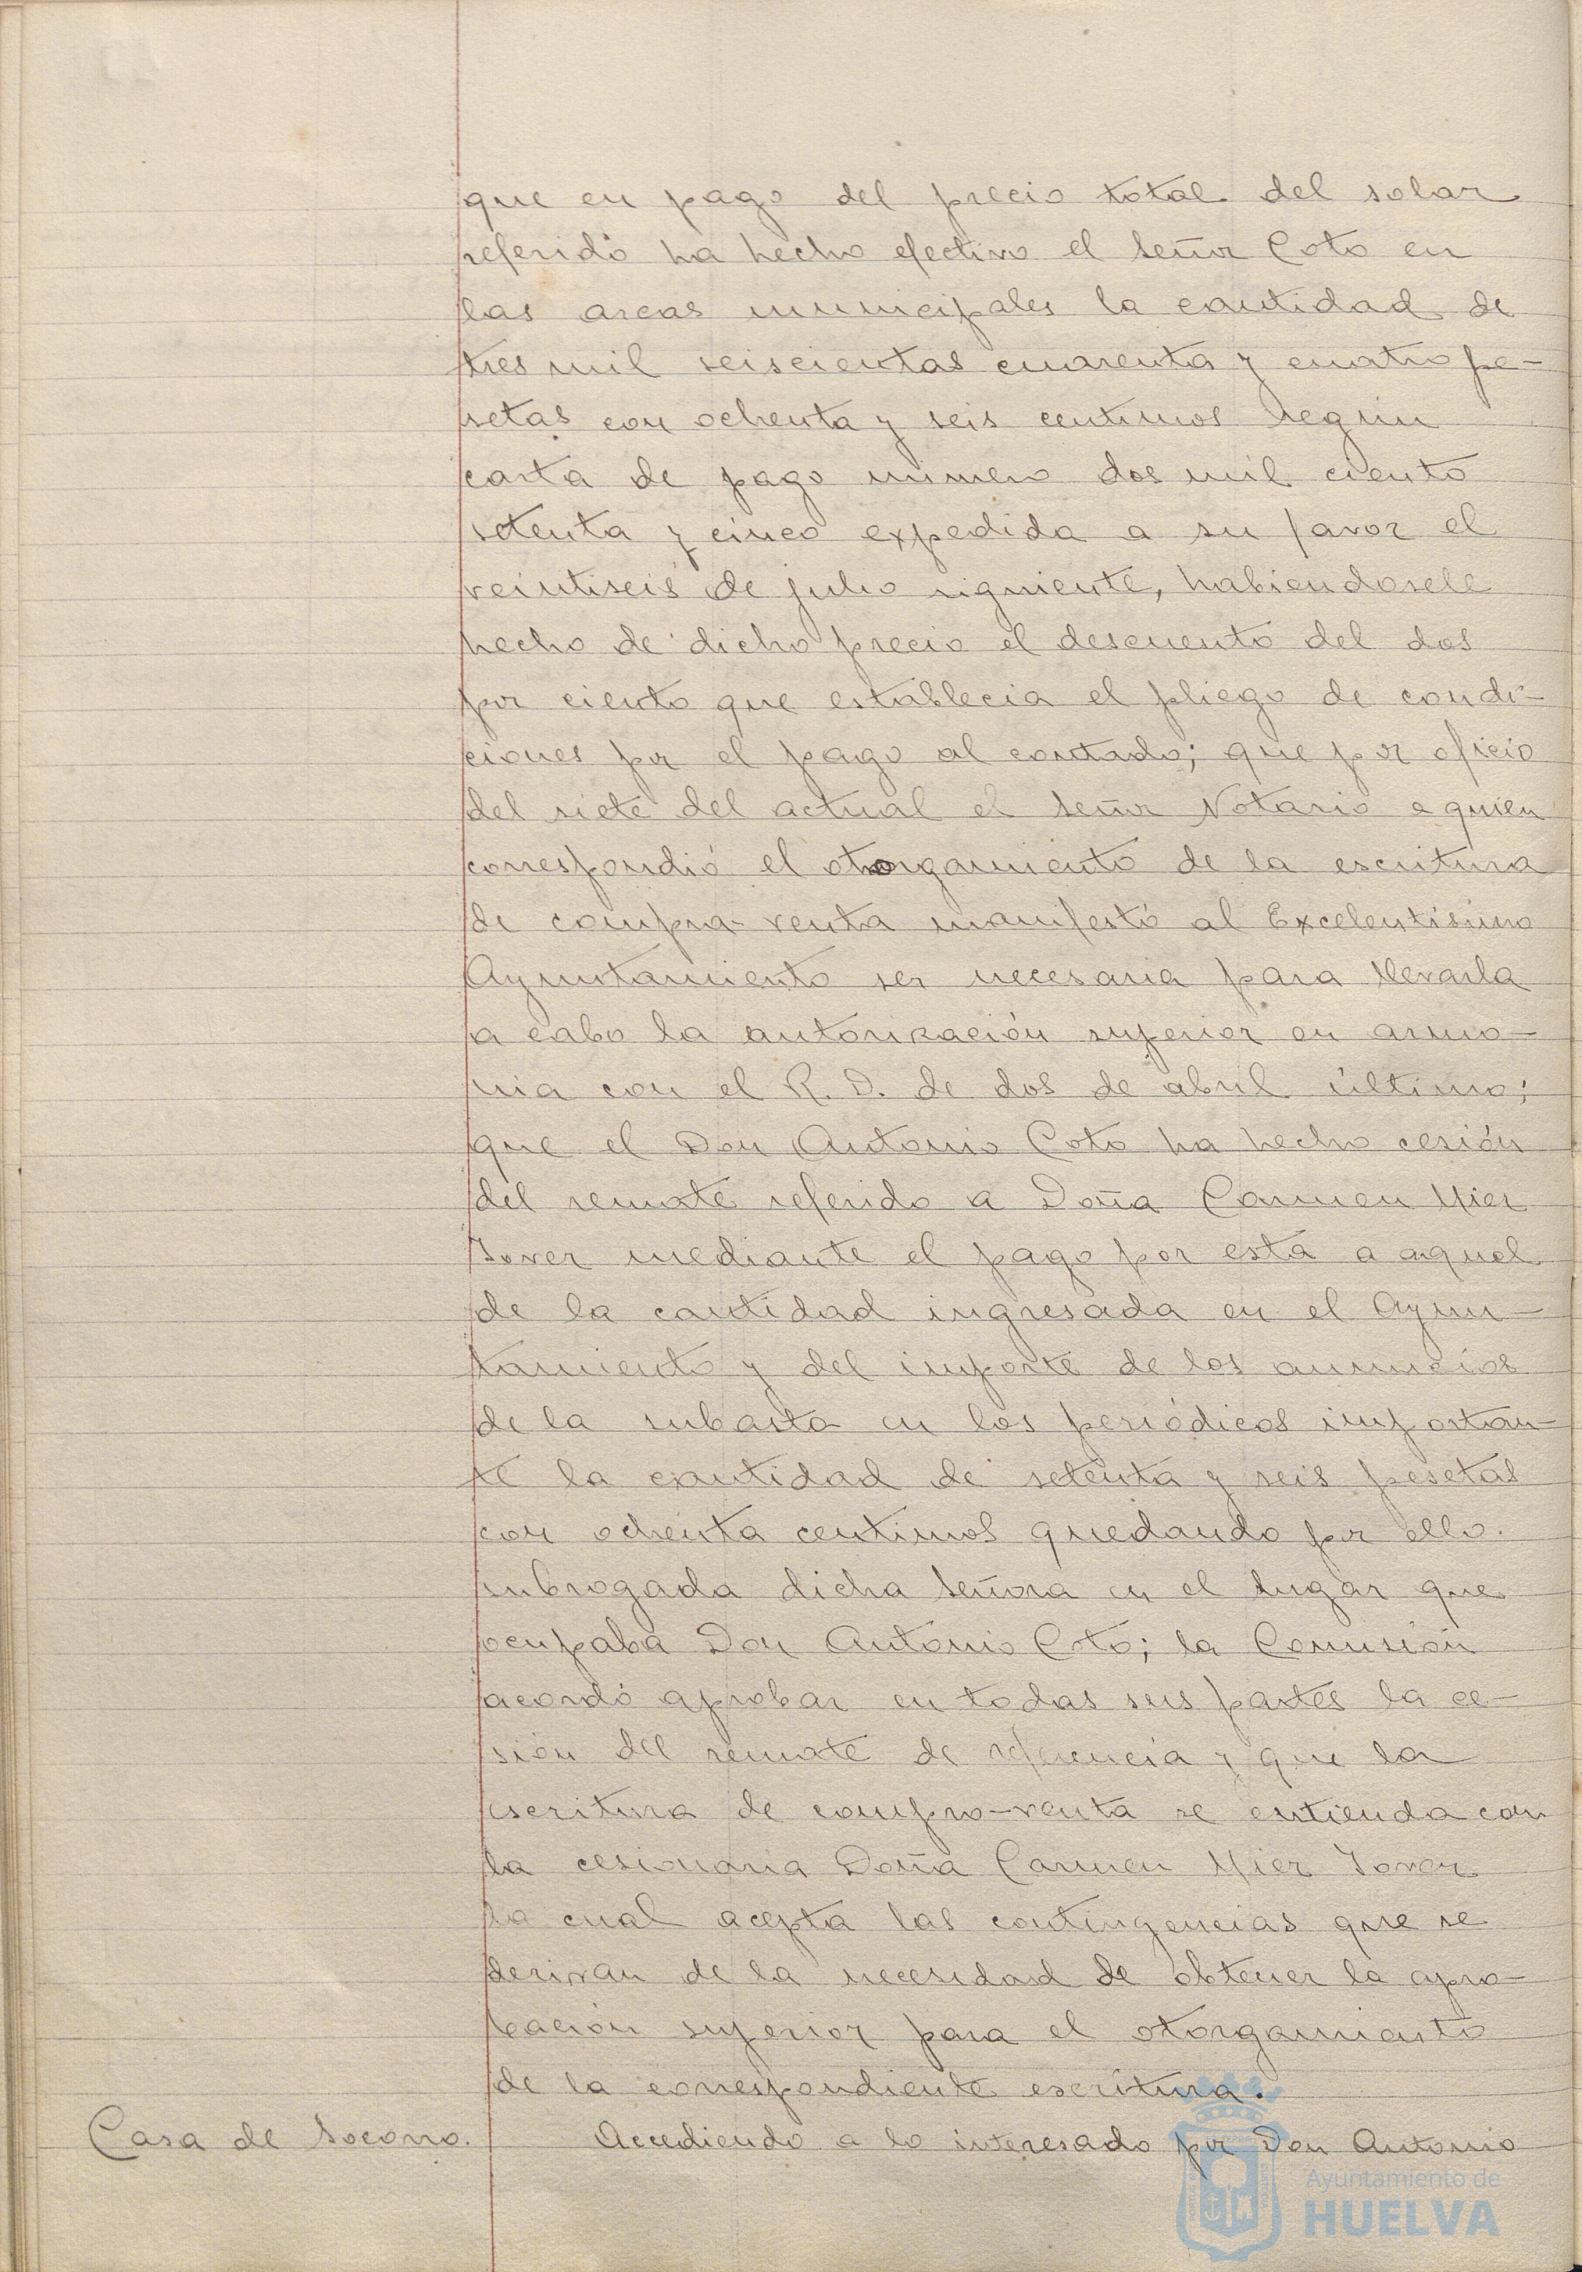 que en pago del precio total del solar
referido ha hecho efectivo el señor Coto en
las arcas municipales la cantidad de
tres mil seiscientas cuarenta y cuatro pe-
setas con ochenta y seis centimos según
carta de pago número dos mil ciento
setenta y cinco expedida a su favor el
veintiseis de julio siguiente, habiendosele
hecho de dicho precio el descuento del dos
por ciento que establecia el pliego de condi-
ciones por el pago al contado; que por oficio
del siete del actual el señor Notario a quien
correspondió el otorgamiento de la escritura
de compra-venta manifestó al Excelentísimo
Ayuntamiento ser necesaria para llevarla
a cabo la autorización superior en armo-
nia con el R. D. de dos de abril último;
que el Don Antonio Coto ha hecho cesión
del remate referido a Doña Carmen Mier
Jover mediante el pago por esta a aquel
de la cantidad ingresada en el Ayun-
tamiento y del importe de los anuncios
de la subasta en los periódicos importan-
te la cantidad de setenta y seis pesetas
con ochenta centimos quedando por ello
subrogada dicha señora en el lugar que
ocupaba Don Antonio Coto; la Comisión
acordó aprobar en todas sus partes la ce-
sión del remate de referencia y que la
escritura de compra-venta se entienda con
la cesionaria Doña Carmen Mier Jover
la cual acepta las contingencias que se
derivan de la necesidad de obtener la apro-
bación superior para el otorgamiento
de la correspondiente escritura.
Casa de Socorro. Accediendo a lo interesado por Don Antonio
Ayuntamiento de
HUELVA